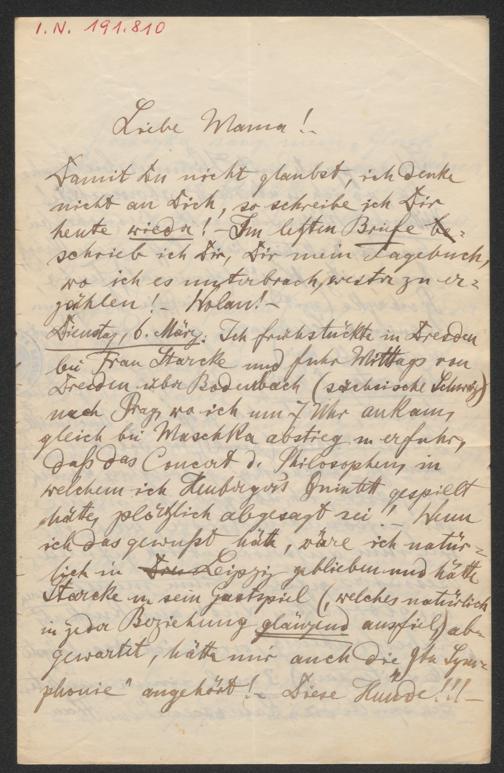 I.N. 191.810
Liebe Mama!-
Damit Du nicht glaubst, ich denke
nicht an Dich, so schreibe ich Dir
heute wieder! - Im letzten Briefe be=
schrieb ich Dir, Dir mein Tagebuch,
wo ich es unterbrach, weiter zu er=
zählen! - Wolan! -
Dienstag, 6. März. Ich frühstückte in Dresden
bei Frau Starcke und fuhr Mittags von
Dresden über Bodenbach (sächsische Schweiz)
nach Prag, wo ich um 7 Uhr ankam,
gleich bei Maschka abstieg u. erfuhr,
daß das Concert d. Philosophen, in
welchem ich Heubergers Quintett gespielt
hätte, plötzlich abgesagt sei! - Wenn
ich das gewußt hätte, wäre ich natür=
lich in Leipzig geblieben und hätte
Starcke u. sein Gastspiel (, welches natürlich
in jeder Beziehung glänzend ausfiel,) ab=
gewartet, hätte mir auch die "9te Sym=
phonie" angehört! - Diese Hunde!!! -